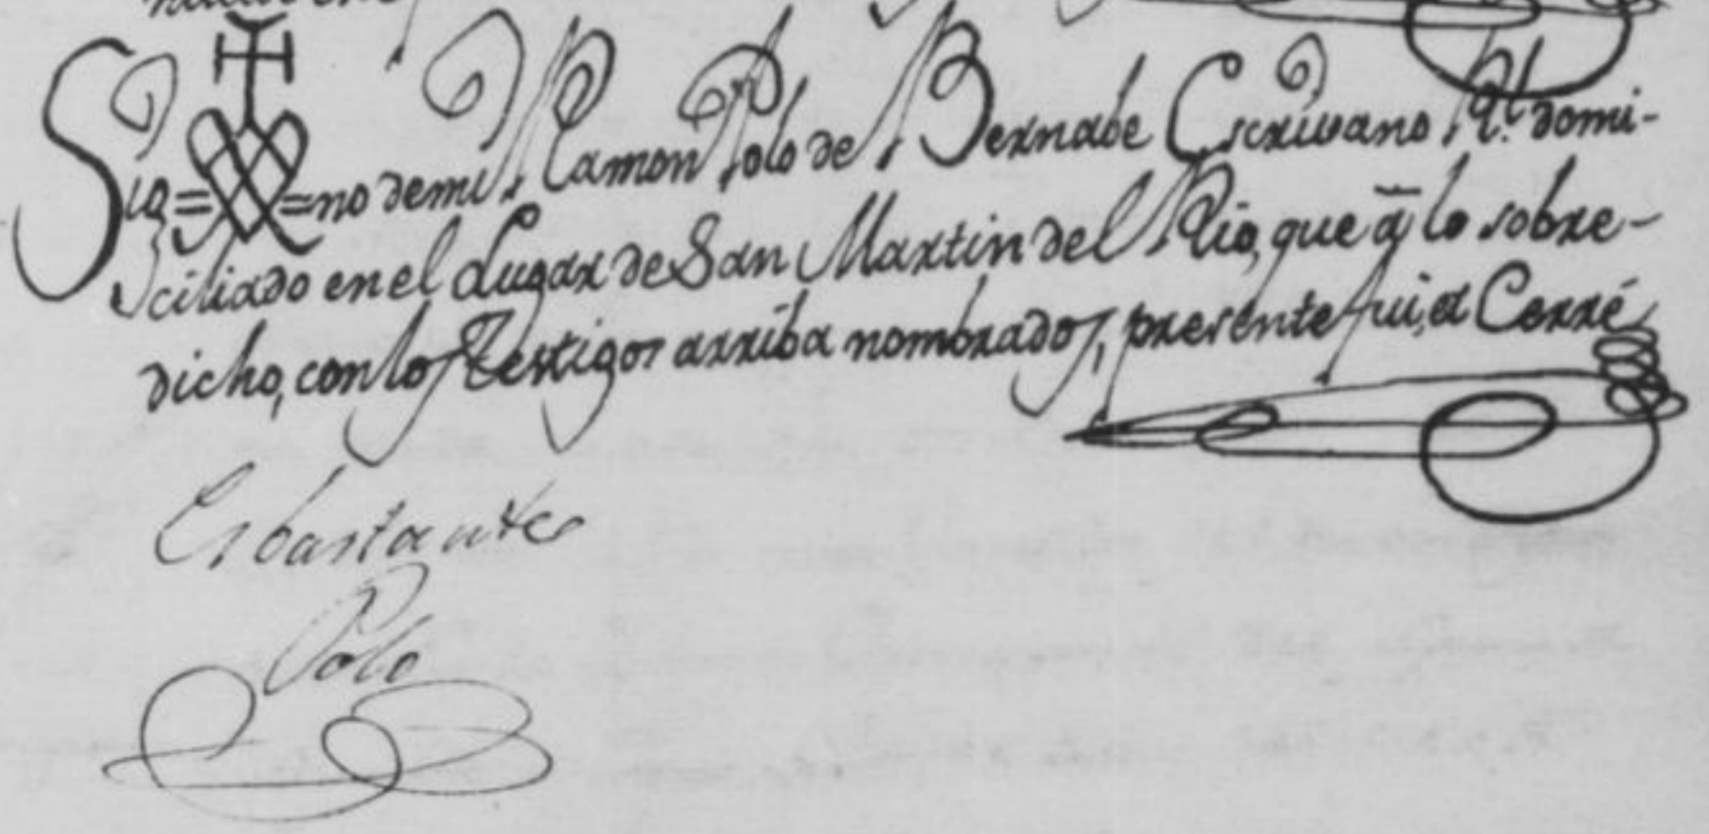 Sig= =no de mi Ramon Polo de Bernabe Escrivano R.l domi-
ciliado en el Lugar de San Martin del Rio, que a̅ lo sobre-
dicho, con los Testigos arriba nombrados, presente fui, et Cerré
Es bastante
Polo